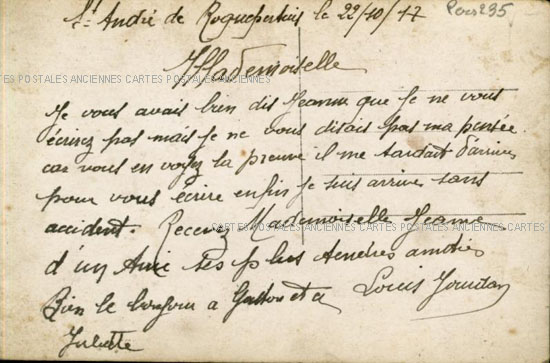 St André de Roquepertuis le 22/10/17
Pers295
Mademoiselle
CARTES POSTALES ANCIENNES CARTES POSTALES ANCIENNES CARTES POSTALES ANCIENNES CARTES POSTALES ANCIENNES
Je vous avais bien dis Jeanne que je ne vous
écrirez pas mais je ne vous disais pas ma pensée
car vous en voyez la preuve il me tardait d'arriver
pour vous écrire enfin je suis arrive sans
accident. Recevez Mademoiselle Jeanne
d'un Ami ses plus tendres amitiés
Bien le bonjour a Gaston et a Louis Jourdan
Juliette